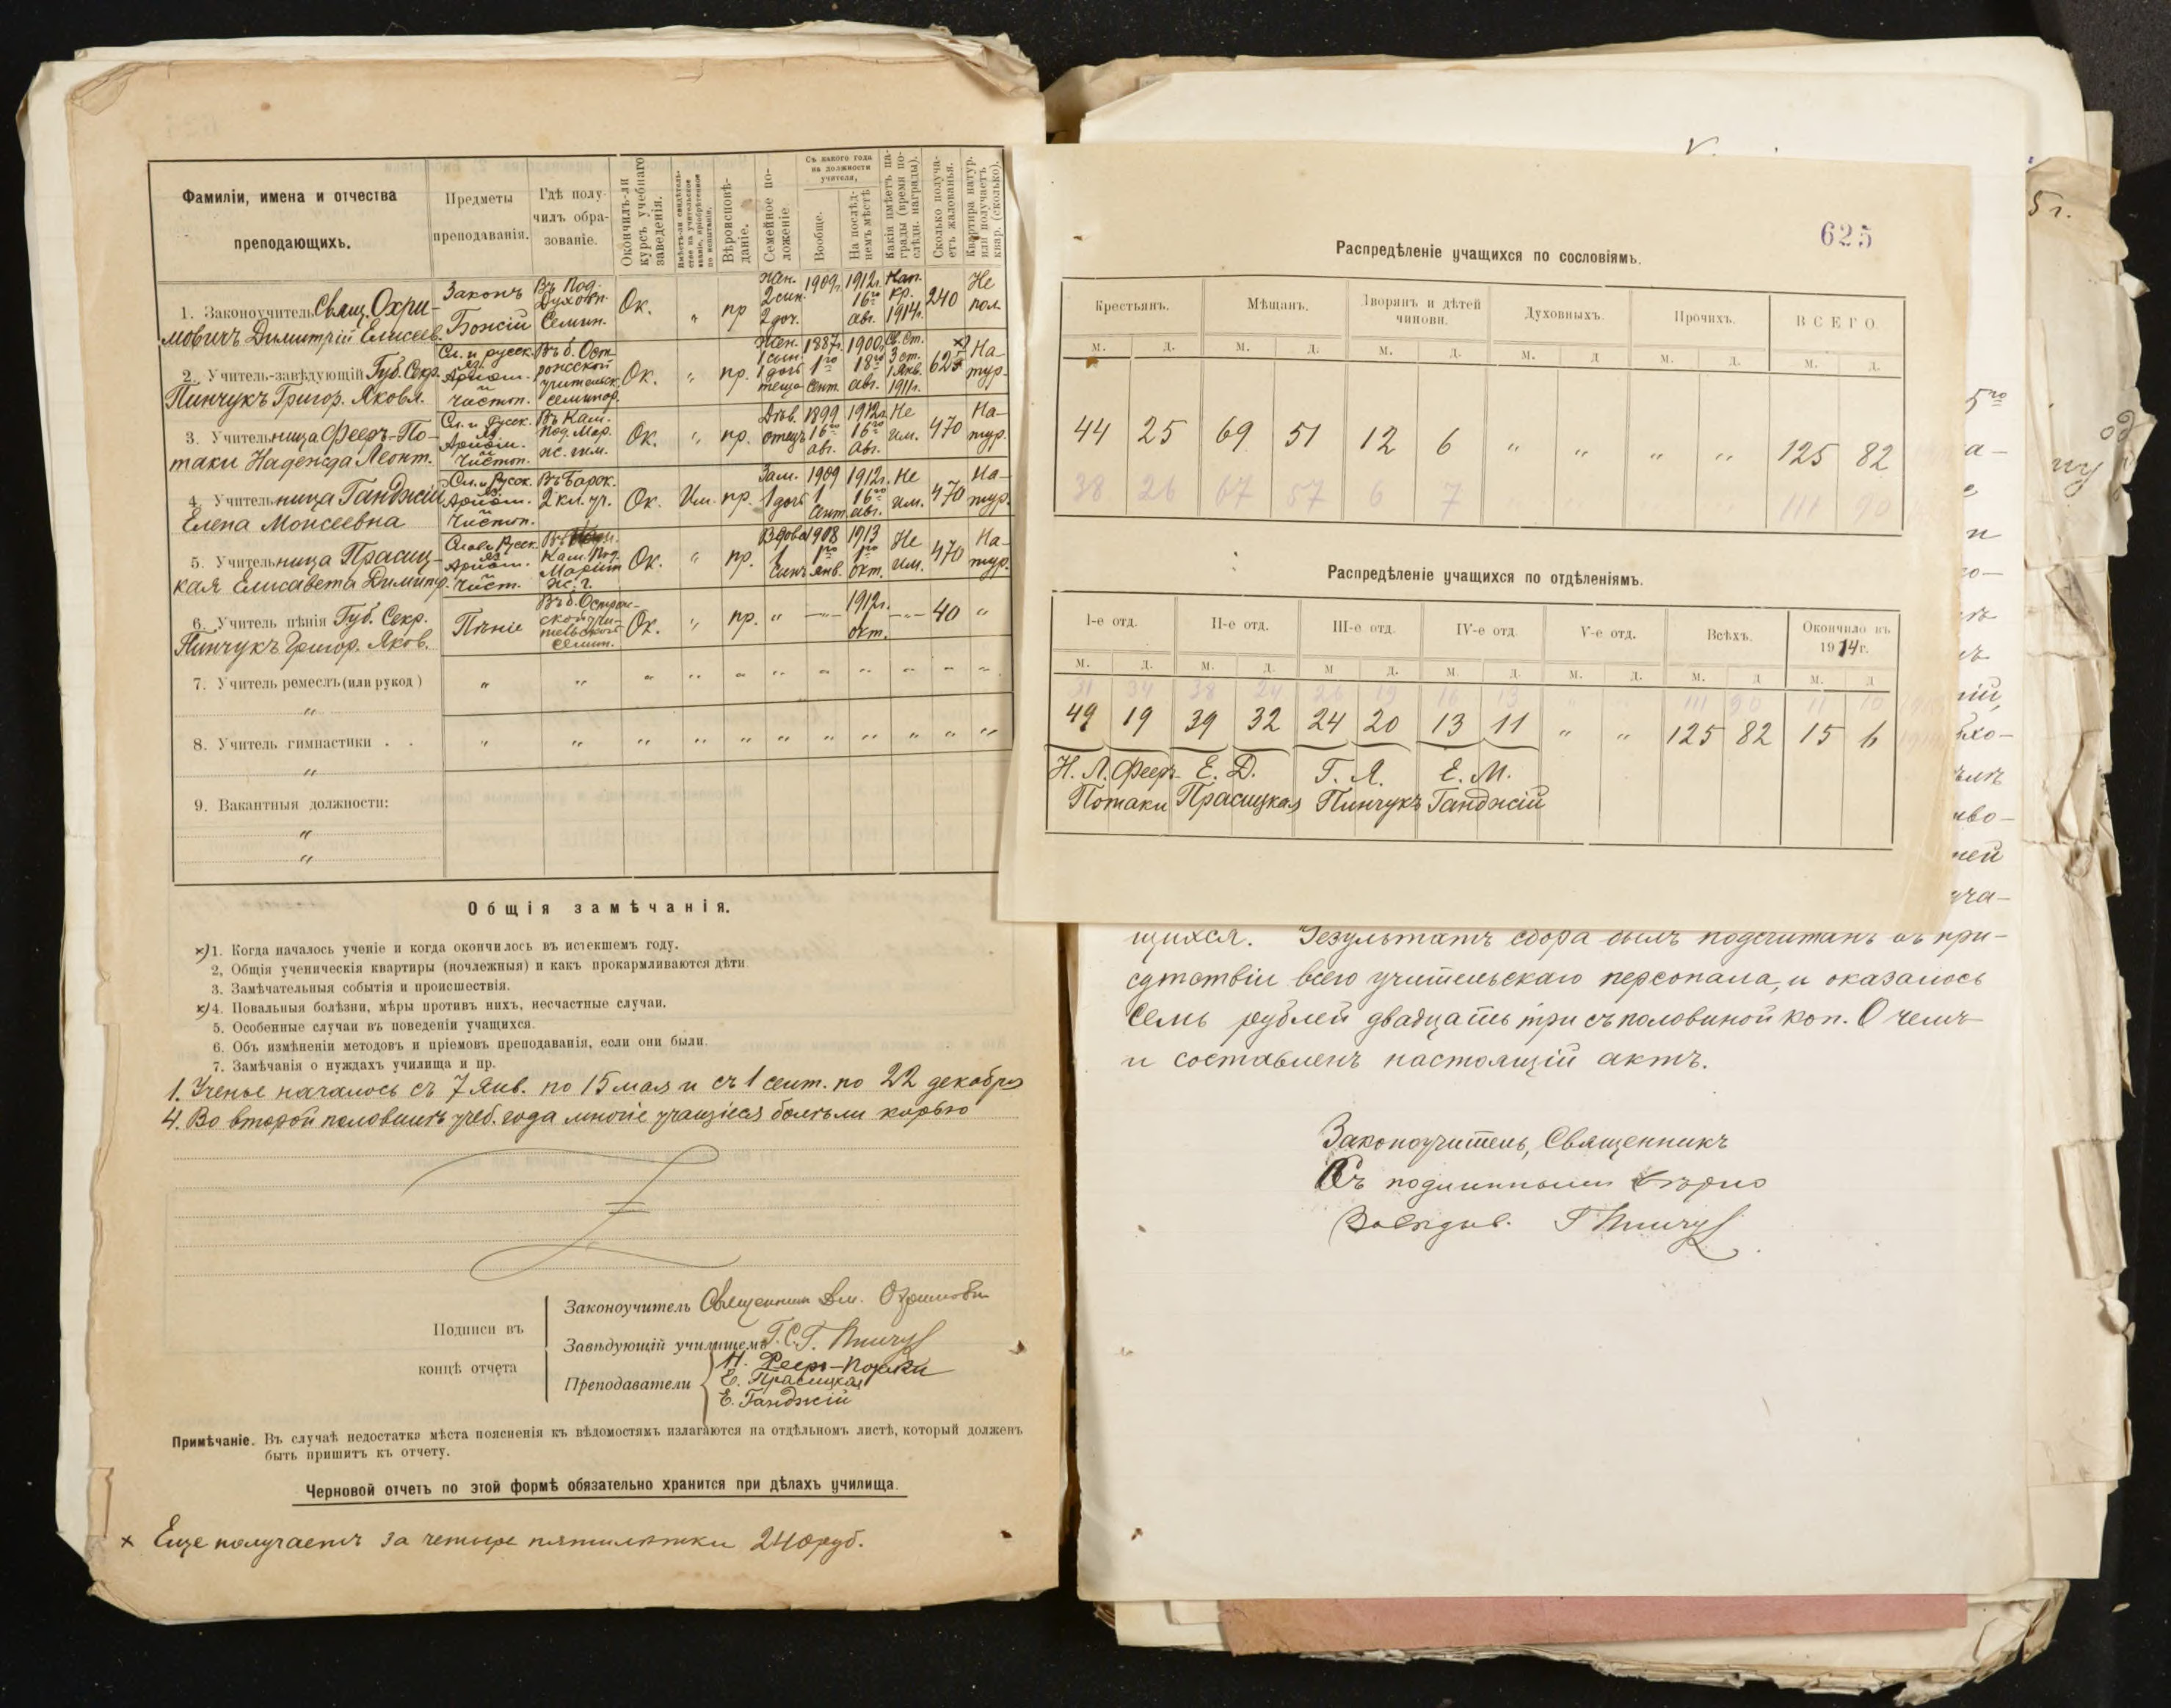 Фамиліи, имена и отчества
преподающихъ.
Предметы
преподаванія.
Гдѣ полу-
чилъ обра-
зованіе.
Окончилъ-ли
курсъ учебнаго
заведенія.
Имѣетъ-ли свидѣтель-
ство на учительское
званіе, пріобрѣтенное
по испытанію.
Вѣроисповѣ-
даніе.
Семейное по-
ложеніе
Съ какого года
на должности
учителя,
Вообще.
На послѣд-
немъ мѣстѣ
Какія имѣетъ на-
грады (время по-
слѣдн. награды).
Сколько получа-
етъ жалованья.
Квартира натур.
или получаетъ
квар. (сколько).
1. Законоучитель Свящ. Охри-
мовичъ Димитрій Елисеев.
Законъ
Божій
Въ Под.
Духовн.
Семин.
Ок.
„
пр
Жен.
2 сын.
2 доч.
1909г.
1912г.
16го
авг.
Нап.
кр.
1914г.
240
Не
пол.
2. Учитель-завѣдующій Губ. Секр.
Пинчукъ Григор. Яковл.
Сл. и русск.
яз.
Ариѳм.
и
Чистоп.
Въ б. Ост-
рожской
учительск.
семинар.
Ок.
„
пр.
Жен.
1 сын
1 дочь
теща
1887г.
1го
Сент.
1900г.
18го
авг.
Св. Ст.
3 ст.
1 Янв.
1911г.
×)
625
На-
тур.
3. Учительница Фееръ-По-
таки Надежда Леонт.
Сл. и Русск.
яз
Ариѳм.
и
Чистоп.
Въ Кам.
Под. Мар.
ж. гим.
Ок.
„
пр.
Дѣв.
отецъ
1899
16го
авг.
1912г.
16го
Авг.
Не
им.
470
На-
тур.
4. Учительница Ганджій
Елена Моисеевна
Сл. и Русск.
яз.
Ариѳм.
и
Чистоп.
Въ Барок.
2 кл. уч.
Ок.
Им.
пр.
Зам.
1 дочь
1909
1
Сент.
1912г.
16го
авг.
Не
им.
470
На-
тур.
5. Учительница Прасиц-
кая Елисавета Димитр.
Слав. Русск.
яз.
Ариѳм.
и
Чист.
Кам. Под.
Маріин
ж. г.
Ок.
„
пр.
Вдова
1
сынъ
1908
1го
янв.
1913
1го
окт.
Не
им.
470
На-
тур.
6. Учитель пѣнія Губ. Секр.
Пинчукъ Григор. Яков.
Пѣніе
Въ б. Острож-
ской учи-
тельской
семин.
Ок.
„
пр.
„
—„—
1912г.
окт.
—„—
40
„
7. Учитель ремеслъ (или рукод.)
„
8. Учитель гимнастики . .
„
9. Вакантныя должности:
„
„
Общія замѣчанія.
×) 1. Когда началось ученіе и когда окончилось въ истекшемъ году.
2, Общія ученическія квартиры (ночлежныя) и какъ прокармливаются дѣти
3. Замѣчательныя событія и происшествія.
×) 4. Повальныя болѣзни, мѣры противъ нихъ, несчастные случаи.
5. Особенные случаи въ поведеніи учащихся.
6. Объ измѣненіи методовъ и пріемовъ преподаванія, если они были.
7. Замѣчанія о нуждахъ училища и пр.
1. Ученье началось съ 7 Янв. по 15 мая и съ 1 сент. по 22 декабря
4. Во второй половинѣ учеб. года многіе учащіеся болѣли корью
Подписи въ
концѣ отчета
Законоучитель Священникъ Дм. Охримовичъ
Завѣдующій училищемъ Г. С. Г. Пинчукъ
Преподаватели
Н. Фееръ-Потаки
Е. Прасицкая
Е. Ганджій
Примѣчаніе. Въ случаѣ недостатка мѣста поясненія къ вѣдомостямъ излагаются на отдѣльномъ листѣ, который долженъ
быть пришитъ къ отчету.
Черновой отчетъ по этой формѣ обязательно хранится при дѣлахъ училища.
× Еще получаетъ за четыре пятилѣтки 240 руб.
625
Распредѣленіе учащихся по сословіямъ.
Крестьянъ. Мѣщанъ. Дворянъ и дѣтей чиновн. Духовныхъ. Прочихъ. ВСЕГО.
м. д. м. д. м. д. м. д м. д. м. д.
44 25 69 51 12 6 „ „ „ „ 125 82
38 26 67 57 6 7 111 90
Распредѣленіе учащихся по отдѣленіямъ.
I-е отд. II-е отд. III-е отд. IV-е отд V-е отд. Всѣхъ. Окончило въ 1914г.
м. д. м. д. м д. м. д. м. д. м. д м. д
31 34 38 24 26 19 16 13 „ „ 111 90 11 10
49 19 39 32 24 20 13 11 „ „ 125 82 15 6
Н. Л. Фееръ- Е. Д. Г. Я. Е. М.
Потаки Прасицкая Пинчукъ Ганджій
5 г.
щихся. Результатъ сбора былъ подсчитанъ въ при-
сутствіи всего учительскаго персонала, и оказалось
семь рублей двадцать три съ половиной коп. О чемъ
и составленъ настоящій актъ.
Законоучитель, Священникъ
Съ подлиннымъ вѣрно
Завѣдыв. Г Пинчукъ